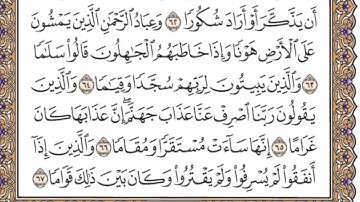 أَن يَذَّكَّرَ أَوْ أَرَادَ شُكُورًا ٦٢ وَعِبَادُ الرَّحْمَٰنِ الَّذِينَ يَمْشُونَ
عَلَى الْأَرْضِ هَوْنًا وَإِذَا خَاطَبَهُمُ الْجَاهِلُونَ قَالُوا سَلَامًا
٦٣ وَالَّذِينَ يَبِيتُونَ لِرَبِّهِمْ سُجَّدًا وَقِيَامًا ٦٤ وَالَّذِينَ
يَقُولُونَ رَبَّنَا اصْرِفْ عَنَّا عَذَابَ جَهَنَّمَ ۖ إِنَّ عَذَابَهَا كَانَ
غَرَامًا ٦٥ إِنَّهَا سَاءَتْ مُسْتَقَرًّا وَمُقَامًا ٦٦ وَالَّذِينَ إِذَا
أَنفَقُوا لَمْ يُسْرِفُوا وَلَمْ يَقْتُرُوا وَكَانَ بَيْنَ ذَٰلِكَ قَوَامًا ٦٧